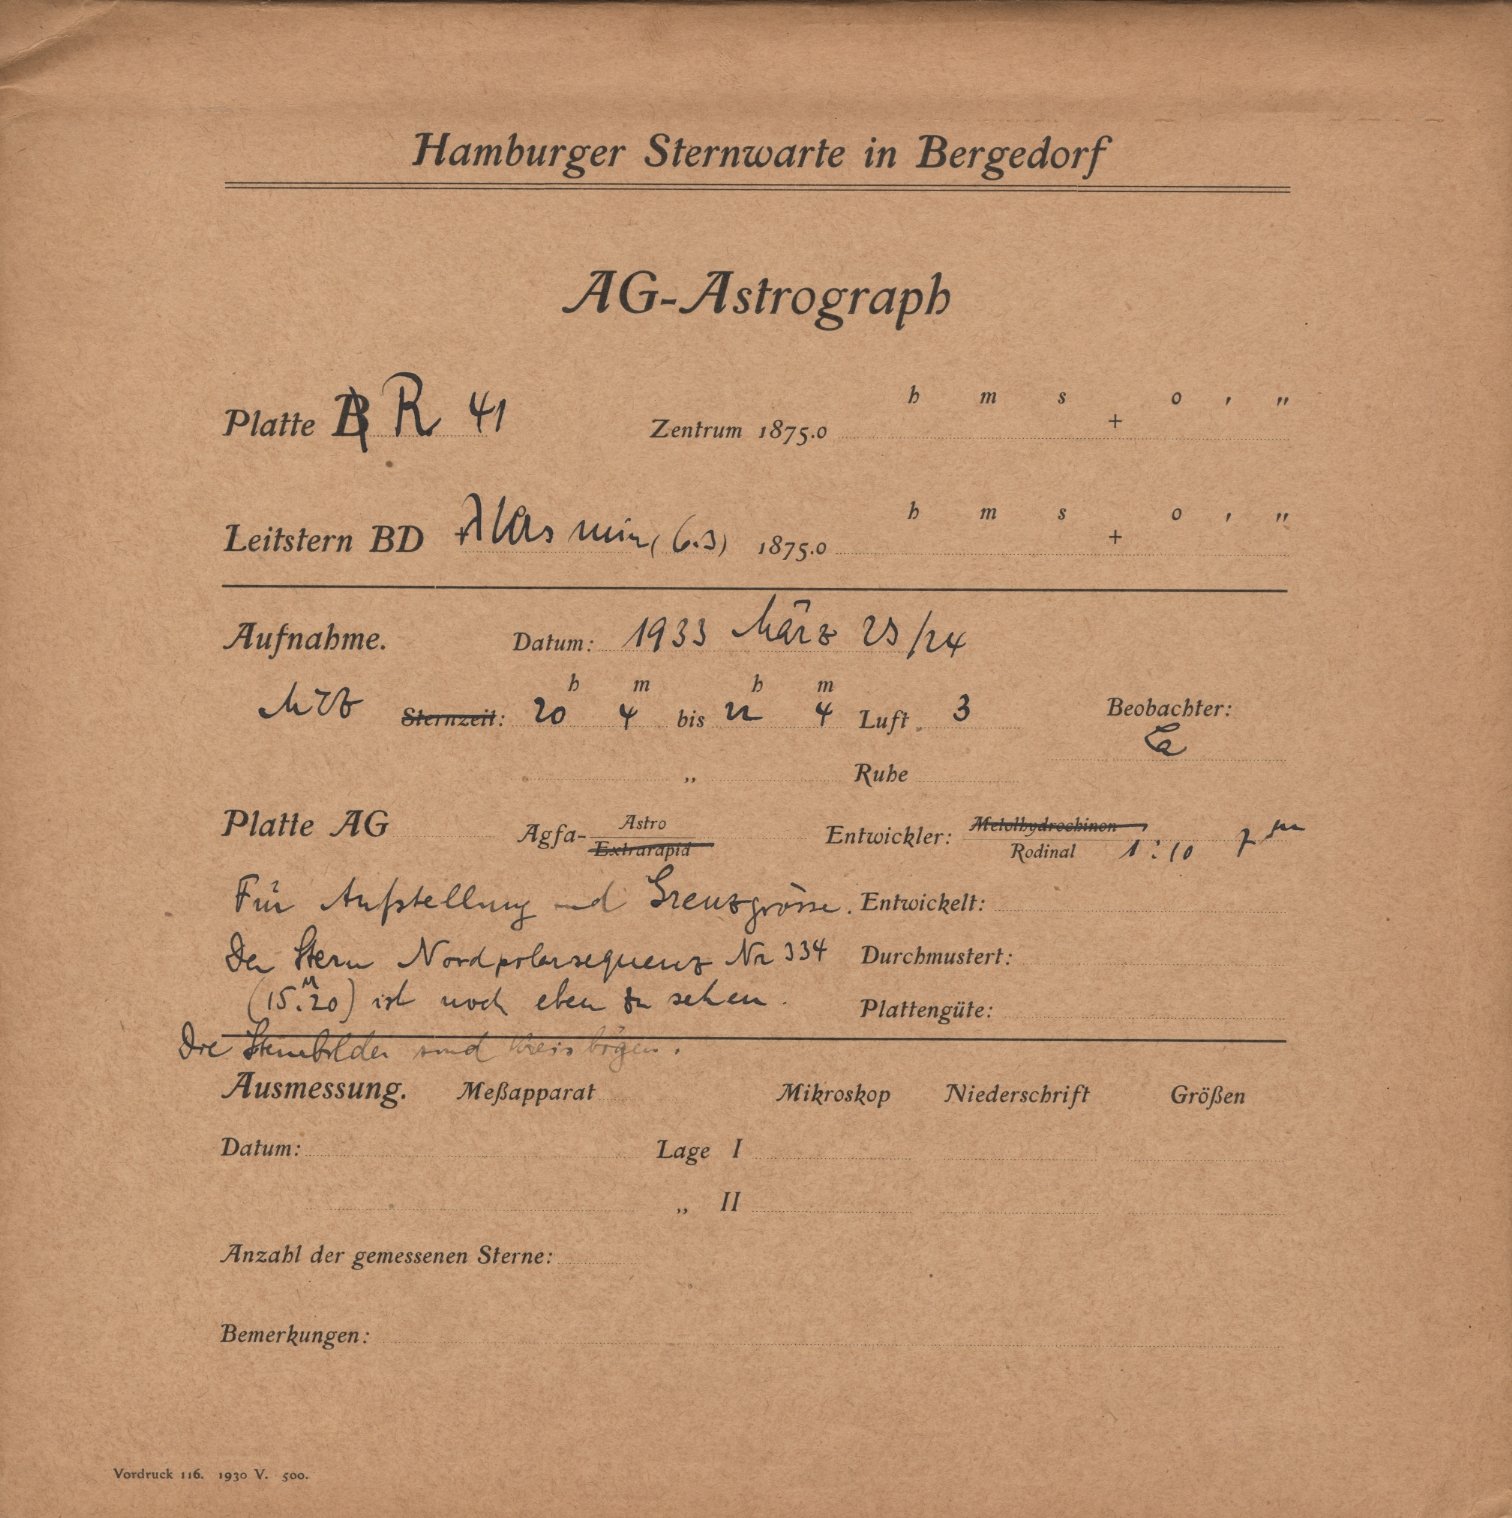 Hamburger Sternwarte in Bergedorf
AG-Astrograph
h m s o ' "
Platte B R 41 Zentrum 1875.0 +
h m s o ' "
Leitstern BD + λ Urs min (6.3) 1875.0 +
Aufnahme. Datum: 1933 März 23/24
h m h m
MEZ Sternzeit: 20 4 bis 22 4 Luft 3 Beobachter:
„ Ruhe
Platte AG Agfa- Astro Extrarapid Entwickler: Metolhydrochinon Rodinal 1:10 7m
Für Aufstellung und Grenzgrösse. Entwickelt:
Der Stern Nordpolarsequenz Nr 334 Durchmustert:
(15.M20) ist noch eben zu sehen. Plattengüte:
Die Sternbilder sind Kreisbögen.
Ausmessung. Meßapparat Mikroskop Niederschrift Größen
Datum: Lage I
„ II
Anzahl der gemessenen Sterne:
Bemerkungen:
Vordruck 116. 1930 V. 500.